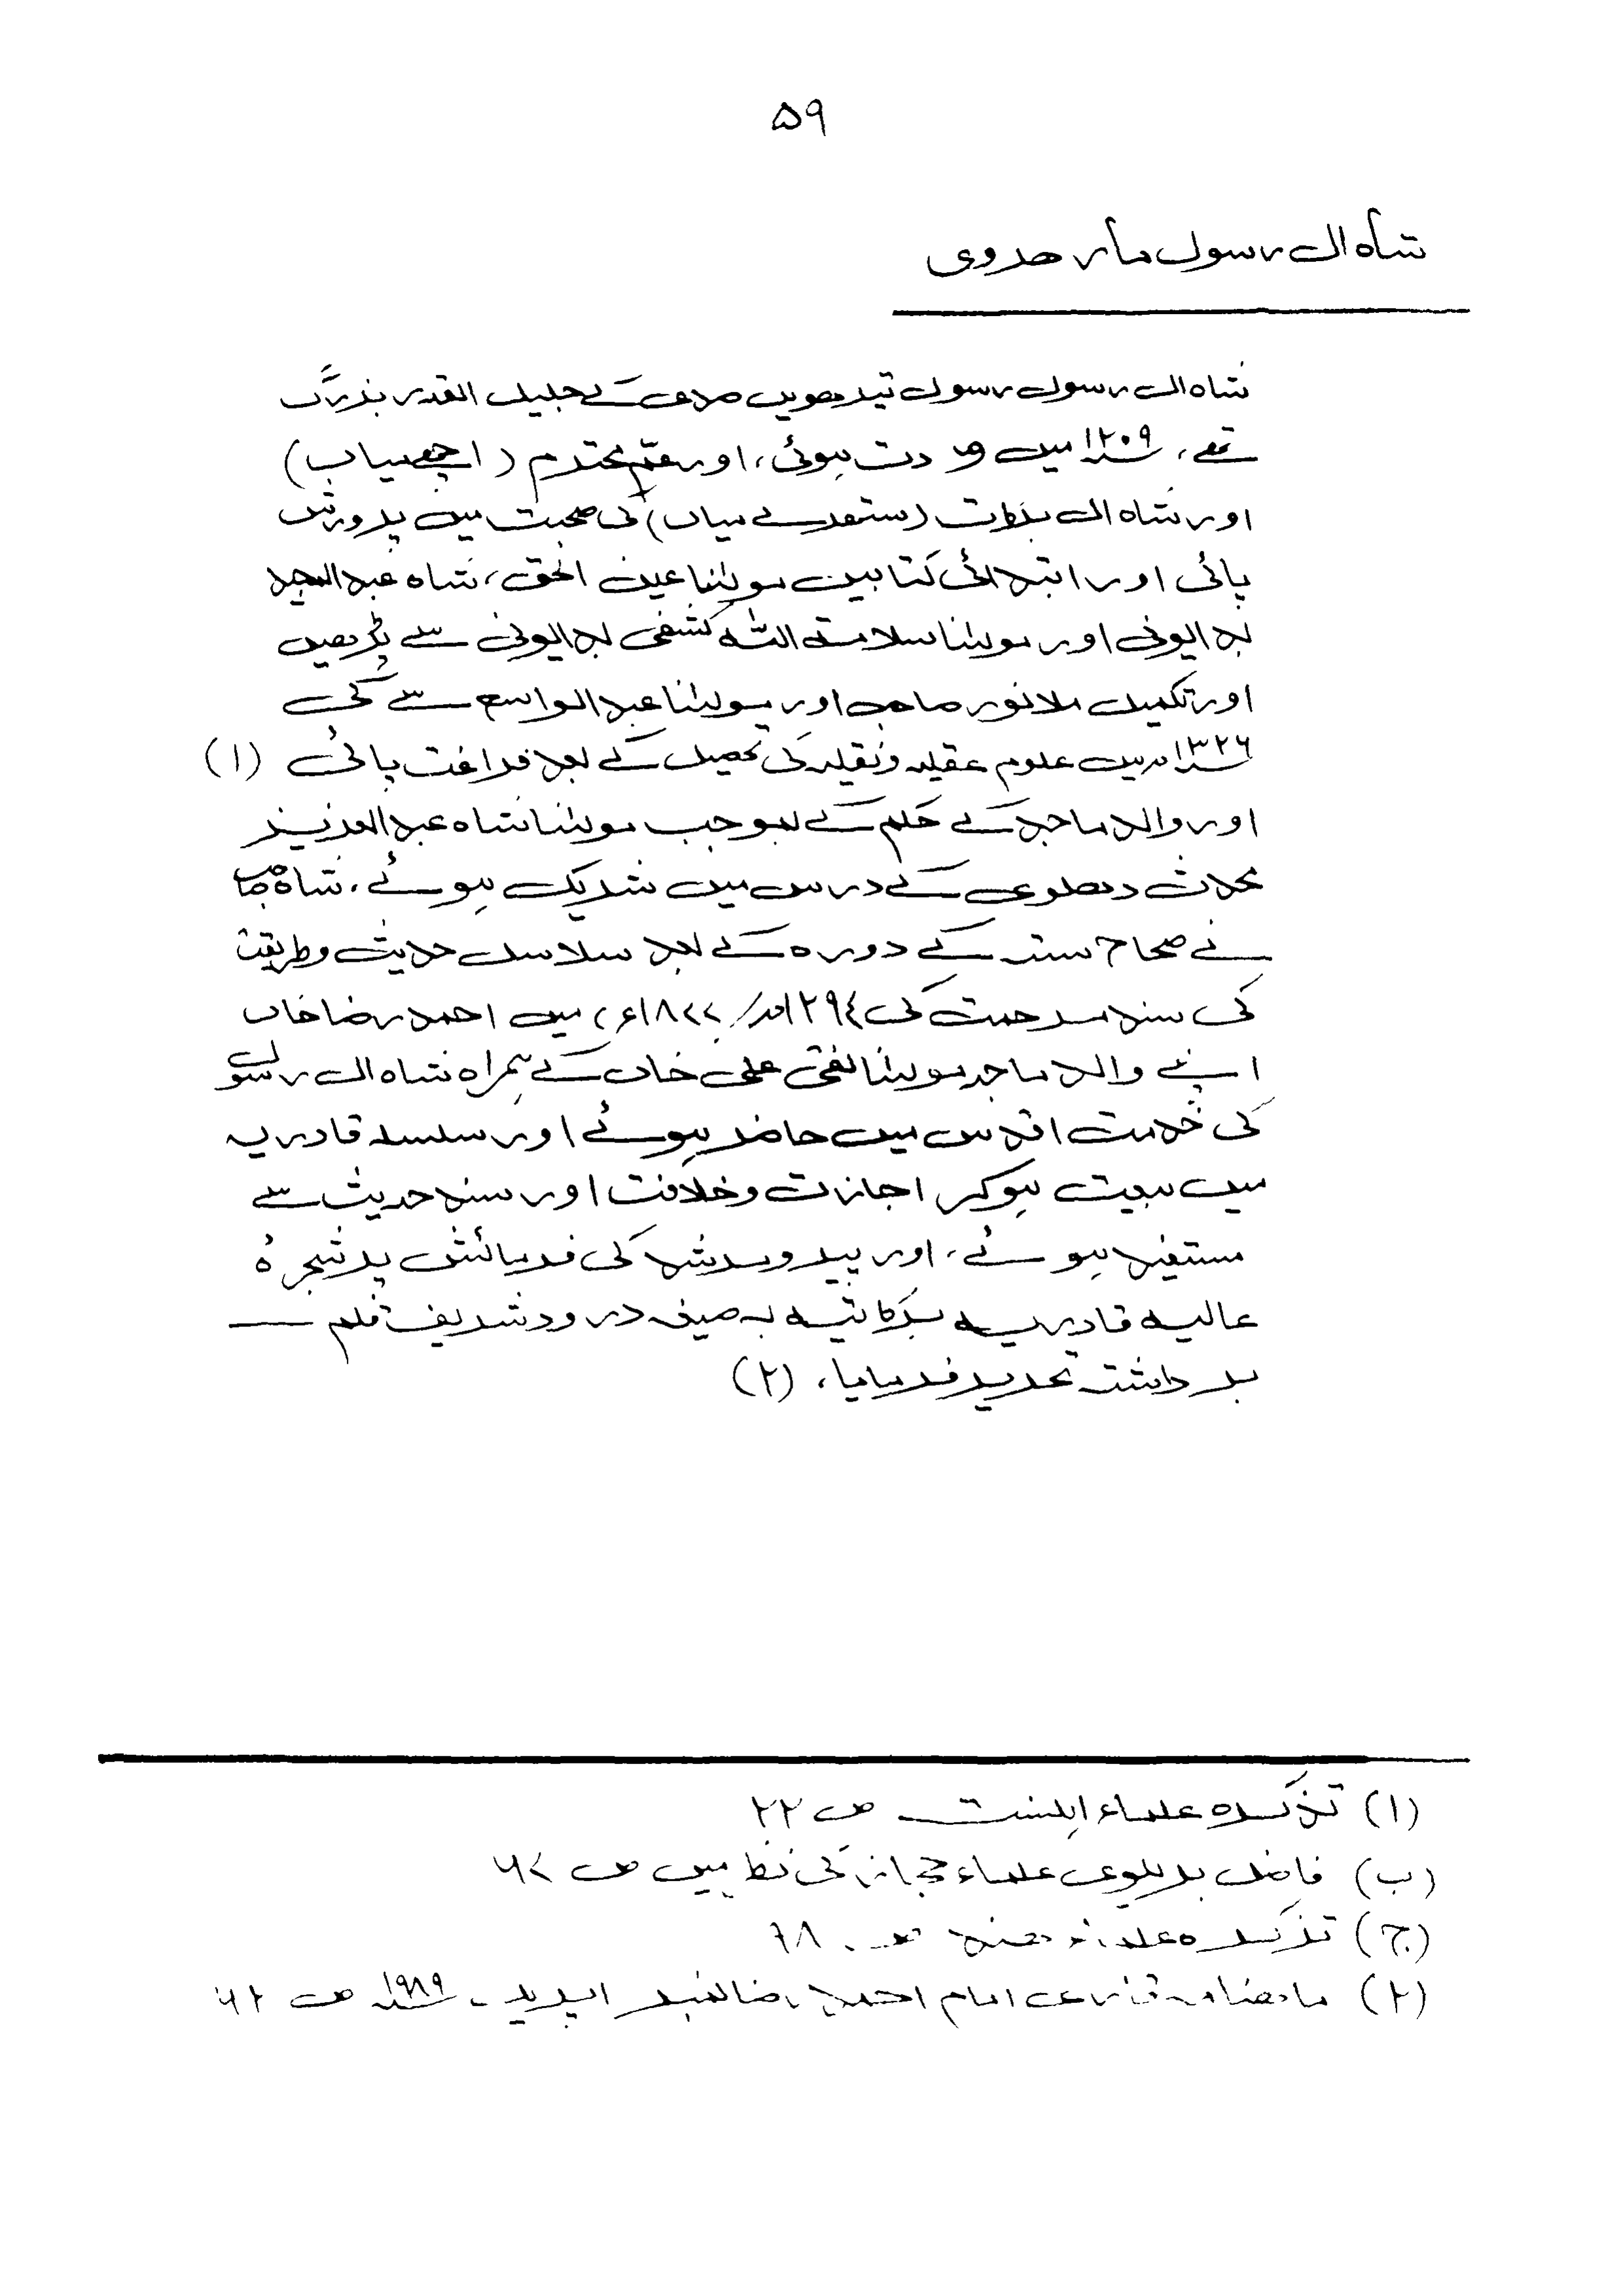 ۵۹
شاہ ال رسول مارھروی
شاہ ال رسول رسول تیرھویں صدی کے جلیل القدر بزرگ
تھے، ۱۲۰۹ میں ولادت ہوئی، اور عم محترم (اچھےمیاں)
اور شاہ ال برکات (ستھرے میاں) کی صحبت میں پرورش
پائی اور ابتدائی کتابیں مولٰنا عین الحق، شاہ عبدالمجید
بدایونی اور مولٰنا سلامت اللہ کشفی بدایونی سے پڑھیں
اور تکمیل ملا نور صاحب اور مولٰنا عبد الواسع سے کی
۱۳۲۶ میں علوم عقلیہ و نقلیہ کی تحصیل کے بعد فراغت پائی (۱)
اور والد ماجد کے حکم کے بموجب مولٰنا شاہ عبد العزیز
محدث دھلوی کے درس میں شریک ہوئے، شاہ صاحب
نے صحاح ستہ کے دورہ کے بعد سلاسل حدیث و طریقت
کی سند مرحمت کی ۱۲۹۴ھ / ۱۸۷۷ء میں احمد رضا خاں
اپنے والد ماجد مولٰنا نقی علی خاں کے ہمراہ شاہ ال رسول
کی خدمت اقدس میں حاضر ہوئے اور سلسلہ قادریہ
میں بیعت ہوکر اجازت و خلافت اور سند حدیث سے
مستفید ہوئے، اور پیر و مرشد کی فرمائش پر شجرۂ
عالیہ قادریہ برکاتیہ بہ صیغہ درود شریف قلم
برداشتہ تحریر فرمایا، (۲)
(۱) تذکرہ علماء اہلسنت ص ۲۲
(ب) فاضل بریلوی علماء حجاز کی نظر میں ص ۶۷
(ج) تذکرہ علمائے ھند ص ۶۸
(۲) ماھنامہ قاری امام احمد رضا نمبر اپریل ۱۹۸۹ ص ۶۲